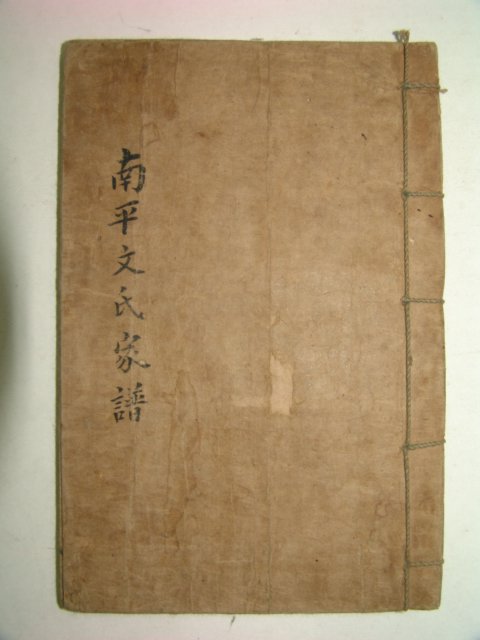 南平文氏家譜